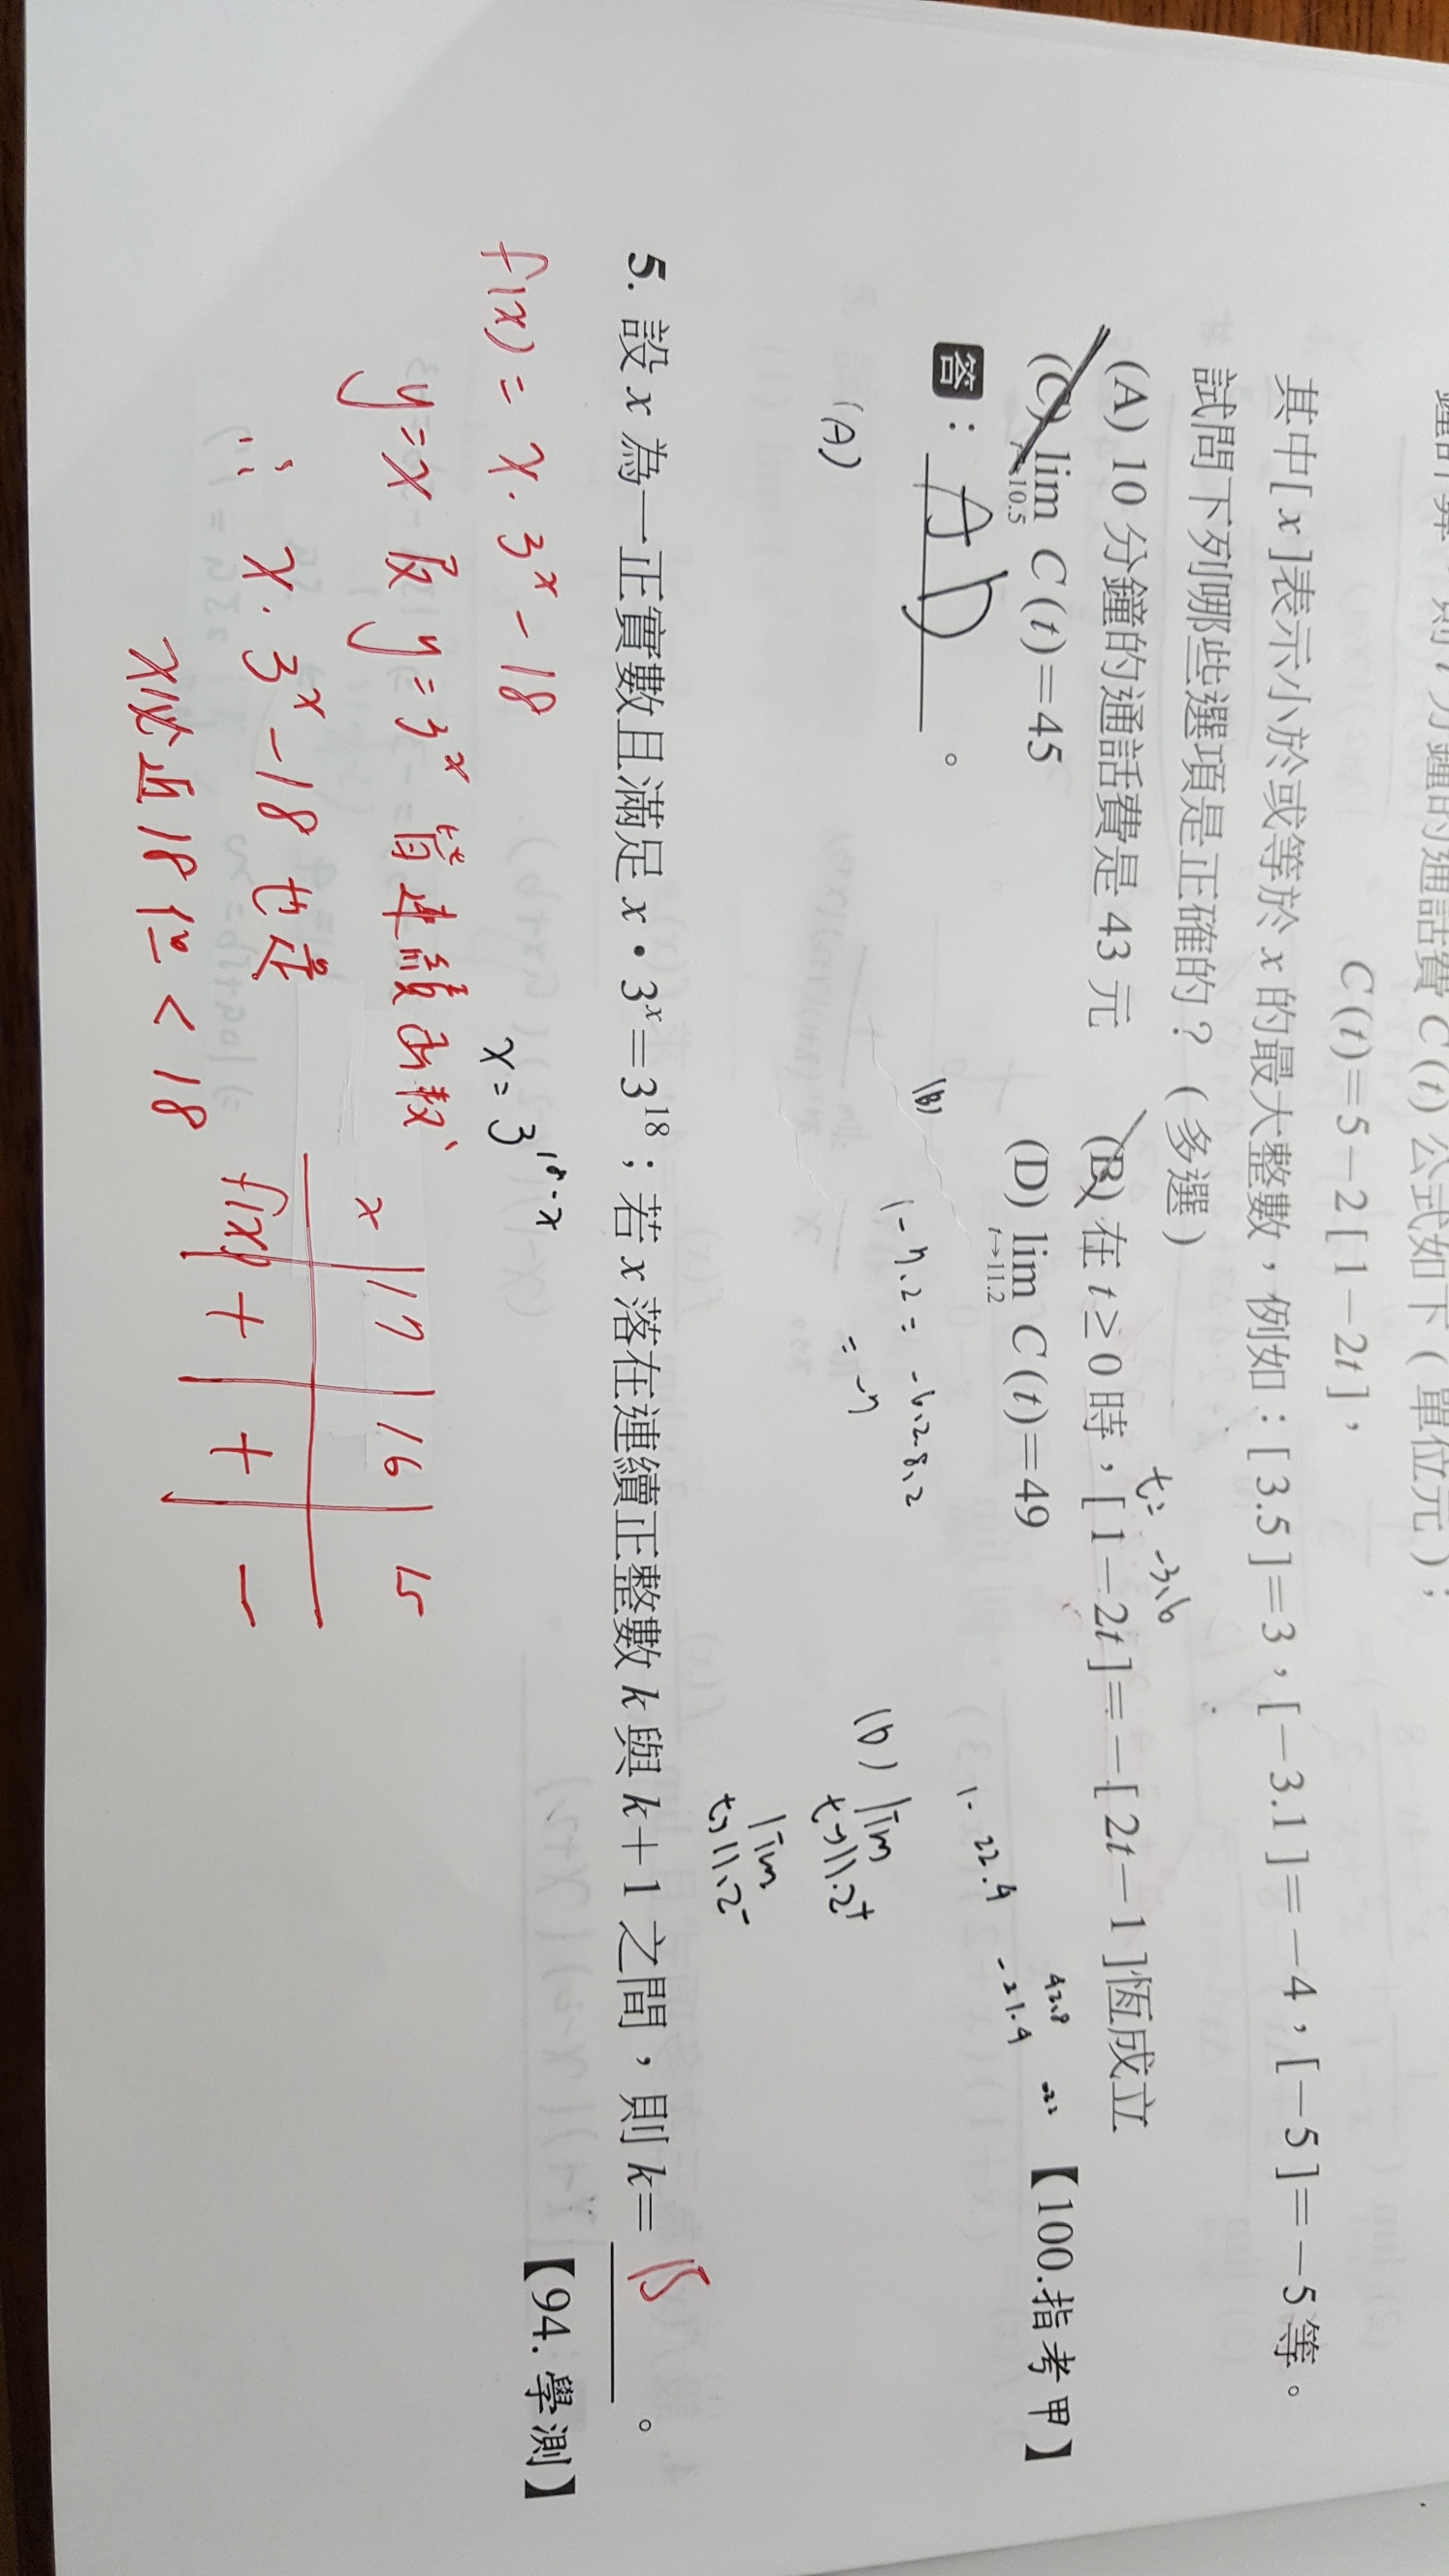 鐘計算，則 t 分鐘的通話費 C(t) 公式如下（單位元）：
C(t)=5−2[1−2t]，
其中[x]表示小於或等於 x 的最大整數，例如：[3.5]=3，[−3.1]=−4，[−5]=−5 等。
試問下列哪些選項是正確的？（多選）
t= -3.6
(A) 10 分鐘的通話費是 43 元 (B) 在 t≥0 時，[1−2t]=−[2t−1]恆成立
(C) lim t→10.5 C(t)=45 (D) lim t→11.2 C(t)=49 【100.指考甲】
42.8
1-22.4 -21.4
答：AD。
(A)
(B) 1-7.2= -6.2
= -7
(D) lim t→11.2+
lim t→11.2-
5. 設 x 為一正實數且滿足 x·3^x=3^18；若 x 落在連續正整數 k 與 k+1 之間，則 k= 15 。
【94.學測】
x=3^18-x
f(x)= x.3^x-18
y=x 及 y=3^x 皆連續函數
∴ x.3^x-18 也是
x必近18但<18
x 17 16 15
f(x) + + −